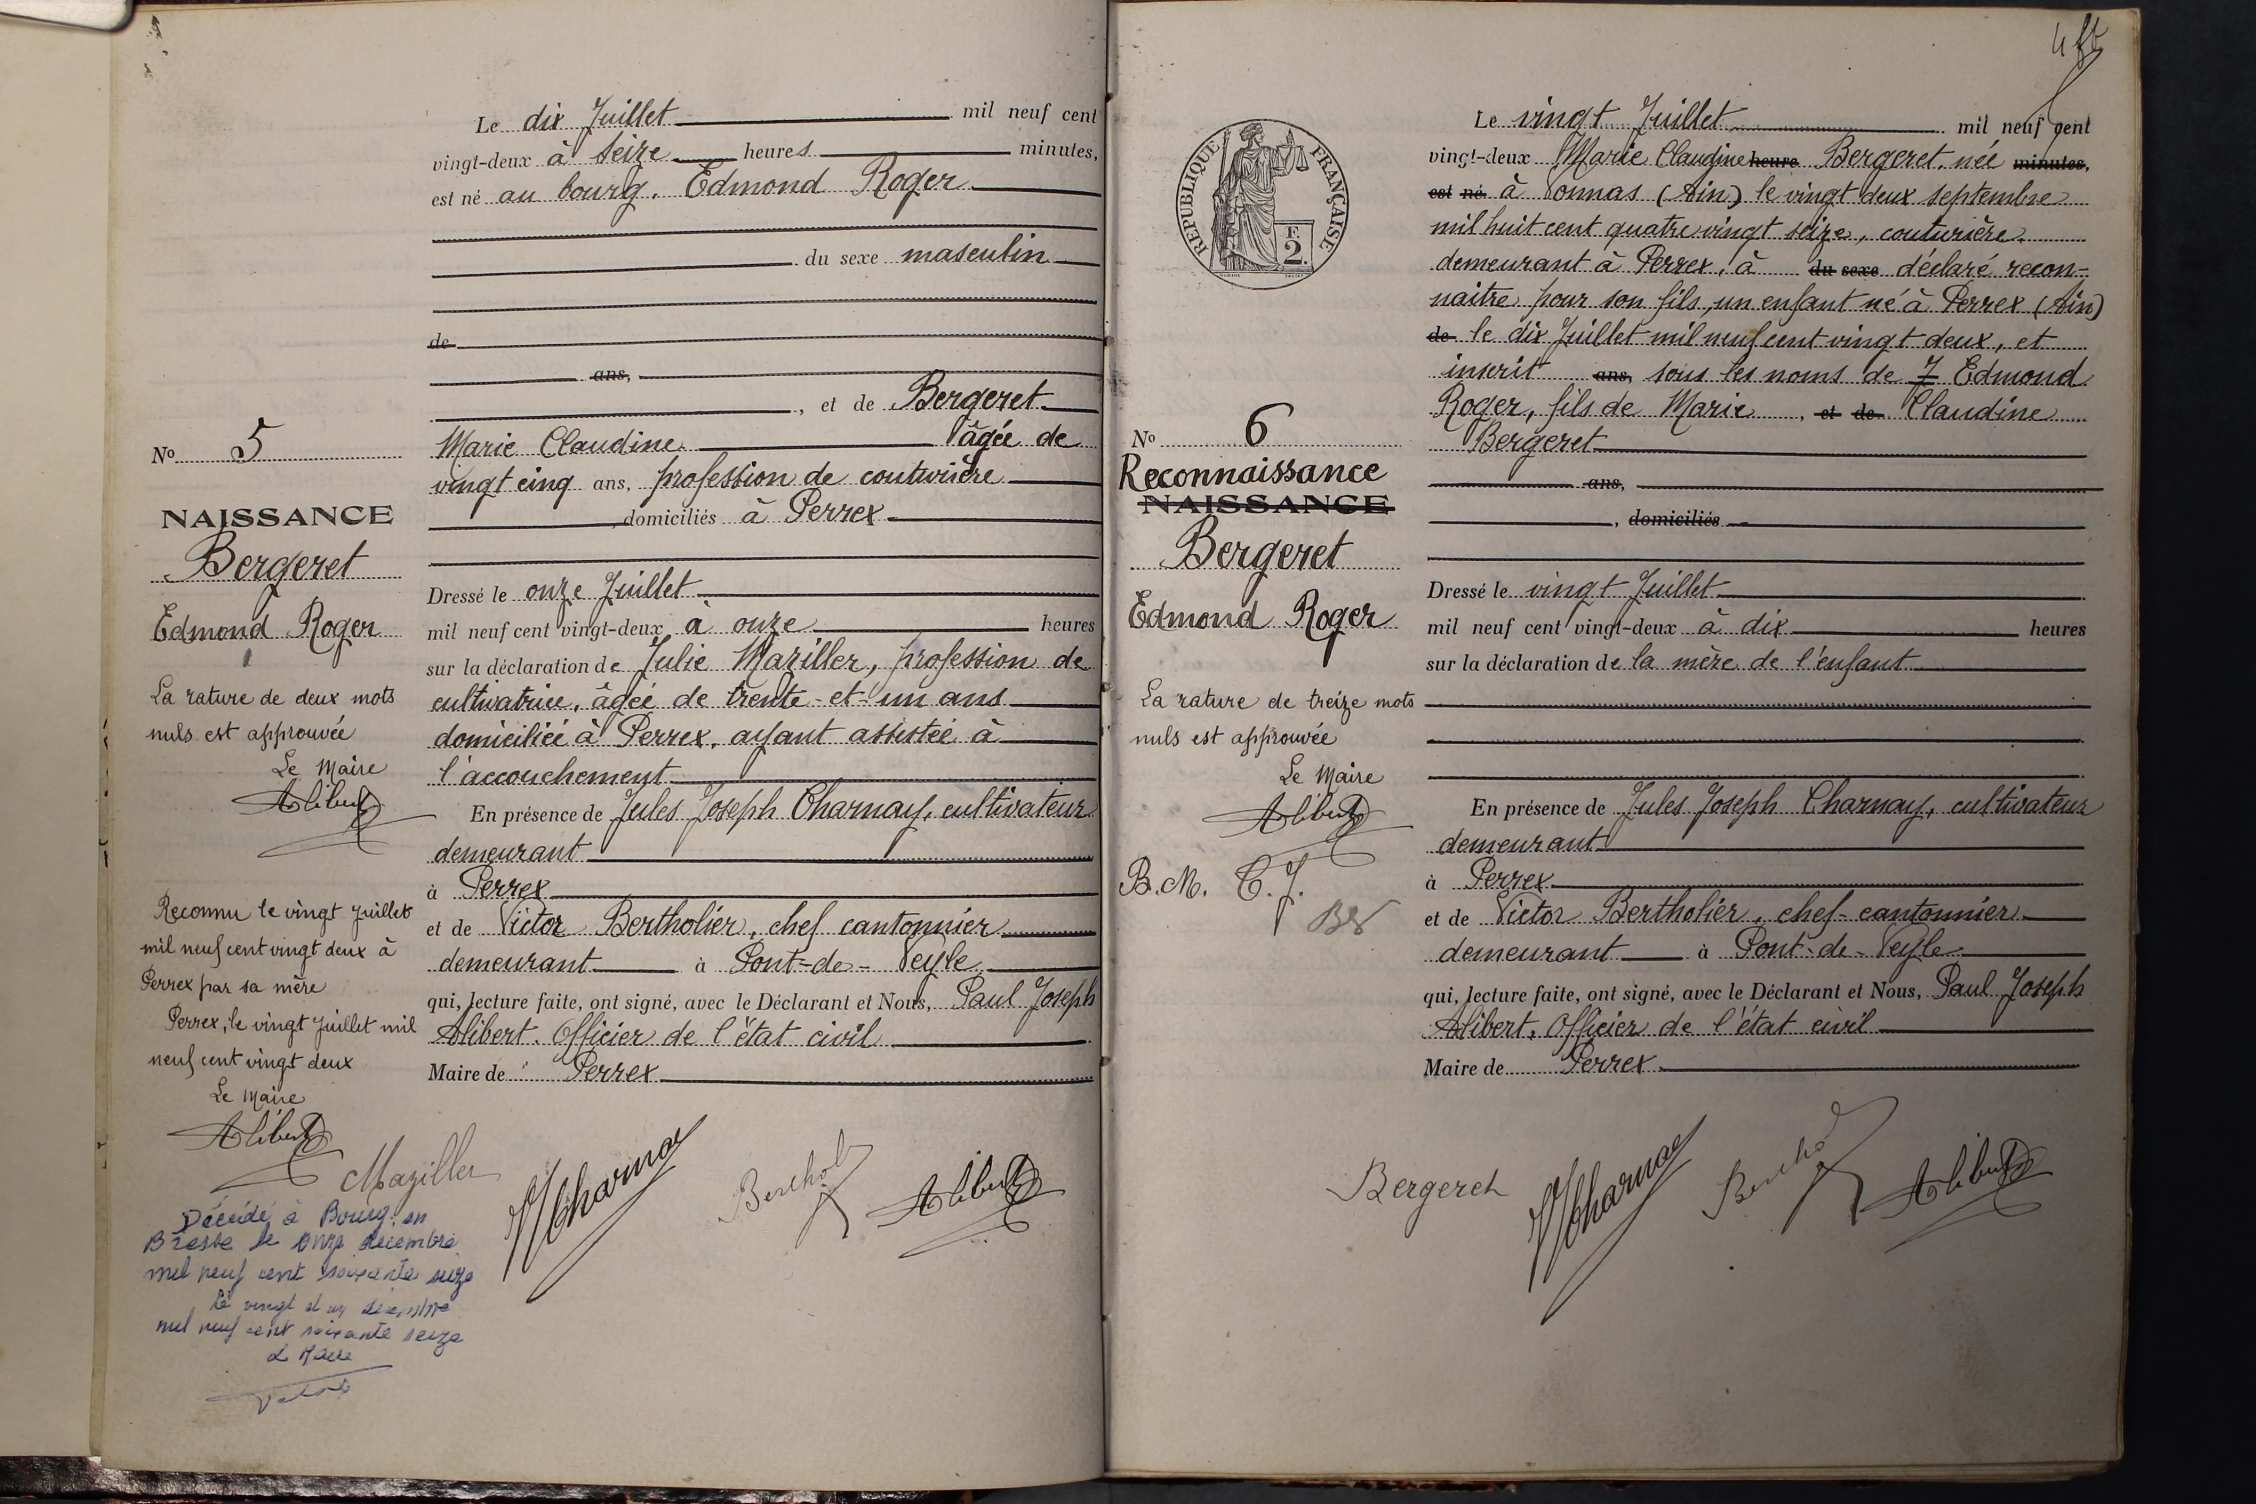 Le dix Juillet mil neuf cent
vingt-deux à seize heures minutes,
est né au bourg. Edmond Roger
du sexe masculin
de
ans,
, et de Bergeret
Marie Claudine âgée de
vingt cinq ans, profession de couturière
, domiciliés à Perrex
Dressé le onze Juillet
mil neuf cent vingt-deux à onze heures
sur la déclaration de Julie Maziller, profession de
cultivatrice, âgée de trente-et-un ans
domiciliée à Perrex, ayant assistée à
l'accouchement
En présence de Jules Joseph Charnay, cultivateur
demeurant
à Perrex
et de Victor Bertholier, chef cantonnier
demeurant à Pont-de-Veyle
qui, lecture faite, ont signé, avec le Déclarant et Nous, Paul Joseph
Alibert. Officier de l'état civil
Maire de Perrex
No 5
NAISSANCE
Bergeret
Edmond Roger
La rature de deux mots
nuls est approuvée
Le Maire
Alibert
Reconnu le vingt Juillet
mil neuf cent vingt deux à
Perrex par sa mère
Perrex, le vingt Juillet mil
neuf cent vingt deux
Le Maire
Alibert
Maziller
Charnay
Berthol
Alibert
Décédé à Bourg en
Bresse le onze décembre
mil neuf cent soixante seize
le vingt et un décembre
mil neuf cent soixante seize
Le Maire
4
REPUBLIQUE FRANÇAISE
F.
2.
Le vingt Juillet mil neuf cent
vingt-deux Marie Claudine heure Bergeret, née minutes,
est né à Vonnas (Ain) le vingt deux septembre
mil huit cent quatre vingt seize, couturière
demeurant à Perrex, à du sexe déclaré recon-
naitre pour son fils, un enfant né à Perrex (Ain)
de le dix Juillet mil neuf cent vingt deux, et
inscrit ans, sous les noms de J Edmond
Roger, fils de Marie , et de Claudine
Bergeret
ans,
, domiciliés
Dressé le vingt Juillet
mil neuf cent vingt-deux à dix heures
sur la déclaration de la mère de l'enfant
En présence de Jules Joseph Charnay, cultivateur
demeurant
à Perrex
et de Victor Bertholier, chef-cantonnier
demeurant à Pont-de-Veyle
qui, lecture faite, ont signé, avec le Déclarant et Nous, Paul Joseph
Alibert, Officier de l'état civil
Maire de Perrex
No 6
Reconnaissance
NAISSANCE
Bergeret
Edmond Roger
La rature de treize mots
nuls est approuvée
Le Maire
Alibert
B.M. C.J.
Bergeret
Charnay
Berthol
Alibert